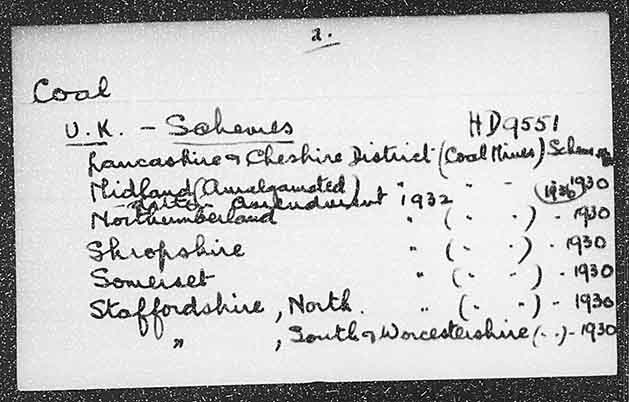 2.
Coal
U.K. - Schemes HD9551
Lancashire & Cheshire District (Coal Mines) Scheme
Midland (Amalgamated) " " - 1930
- ditto - Amendment 1932 (1936)
Northumberland " ( " " ) - 1930
Shropshire " ( " " ) - 1930
Somerset " ( " " ) - 1930
Staffordshire, North. " ( " " ) - 1930
" , South & Worcestershire ( " " ) - 1930